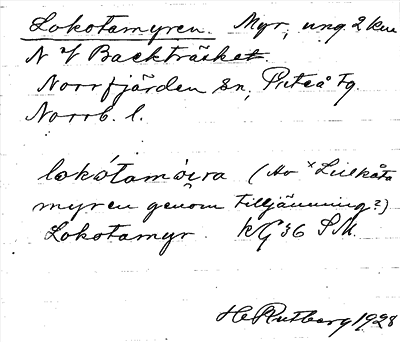 Lokotamyren. Myr, ung. 2 km
N V Backträsket.
Norrfjärden sn, Piteå tg.
Norrb. l.
lokótamóira (Av × Lillkåta
myren genom tilljämning?)
Lokotamyr KG 36 S.M.
H Rutberg 1928